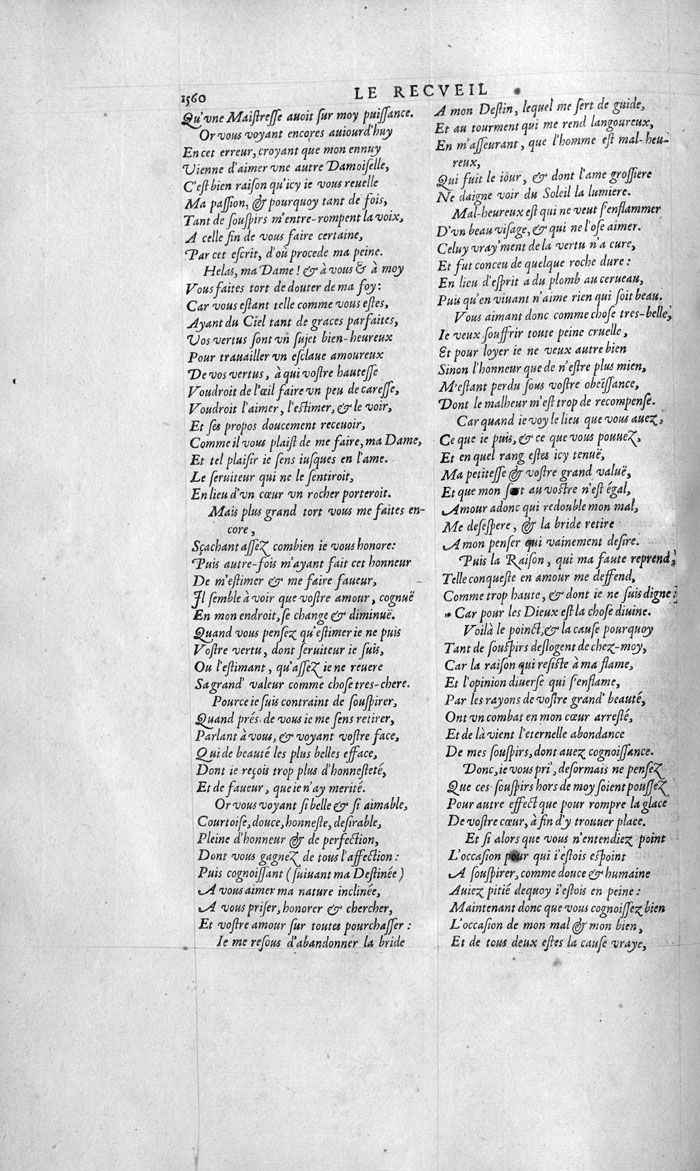 1560
LE RECVEIL
Qu'vne Maistresse auoit sur moy puissance.
Or vous voyant encores auiourd'huy
En cet erreur, croyant que mon ennuy
Vienne d'aimer vne autre Damoiselle,
C'est bien raison qu'icy ie vous reuelle
Ma passion, & pourquoy tant de fois,
Tant de souspirs m'entre-rompent la voix,
A celle fin de vous faire certaine,
Par cet escrit, d'où procede ma peine.
Helas, ma Dame! & à vous & à moy
Vous faites tort de douter de ma foy:
Car vous estant telle comme vous estes,
Ayant du Ciel tant de graces parfaites,
Vos vertus sont vn sujet bien-heureux
Pour trauailler vn esclaue amoureux
De vos vertus, à qui vostre hautesse
Voudroit de l'œil faire vn peu de caresse,
Voudroit l'aimer, l'estimer, & le voir,
Et ses propos doucement receuoir,
Comme il vous plaist de me faire, ma Dame,
Et tel plaisir ie sens iusques en l'ame.
Le seruiteur qui ne le sentiroit,
En lieu d'vn cœur vn rocher porteroit.
Mais plus grand tort vous me faites en-
core,
Sçachant assez combien ie vous honore:
Puis autre-fois m'ayant fait cet honneur
De m'estimer & me faire faueur,
Il semble à voir que vostre amour, cognuë
En mon endroit, se change & diminuë.
Quand vous pensez qu'estimer ie ne puis
Vostre vertu, dont seruiteur ie suis,
Ou l'estimant, qu'assez ie ne reuere
Sa grand' valeur comme chose tres-chere.
Pource ie suis contraint de souspirer,
Quand prés de vous ie me sens retirer,
Parlant à vous, & voyant vostre face,
Qui de beauté les plus belles efface,
Dont ie reçois trop plus d'honnesteté,
Et de faueur, que ie n'ay merité.
Or vous voyant si belle & si aimable,
Courtoise, douce, honneste, desirable,
Pleine d'honneur & de perfection,
Dont vous gagnez de tous l'affection:
Puis cognoissant (suiuant ma Destinée)
A vous aimer ma nature inclinée,
A vous priser, honorer & chercher,
Et vostre amour sur toutes pourchasser:
Ie me resous d'abandonner la bride
A mon Destin, lequel me sert de guide,
Et au tourment qui me rend langoureux,
En m'asseurant, que l'homme est mal-heu-
reux,
Qui fuit le iour, & dont l'ame grossiere
Ne daigne voir du Soleil la lumiere.
Mal-heureux est qui ne veut s'enflammer
D'vn beau visage, & qui ne l'ose aimer.
Celuy vray'ment de la vertu n'a cure,
Et fut conceu de quelque roche dure:
En lieu d'esprit a du plomb au cerueau,
Puis qu'en viuant n'aime rien qui soit beau.
Vous aimant donc comme chose tres-belle,
Ie veux souffrir toute peine cruelle,
Et pour loyer ie ne veux autre bien
Sinon l'honneur que de n'estre plus mien,
M'estant perdu sous vostre obeïssance,
Dont le malheur m'est trop de recompense.
Car quand ie voy le lieu que vous auez,
Ce que ie puis, & ce que vous pouuez,
Et en quel rang estes icy tenuë,
Ma petitesse & vostre grand valuë,
Et que mon sort au vostre n'est égal,
Amour adonc qui redouble mon mal,
Me desespere, & la bride retire
A mon penser qui vainement desire.
Puis la Raison, qui ma faute reprend,
Telle conqueste en amour me deffend,
Comme trop haute, & dont ie ne suis digne:
Car pour les Dieux est la chose diuine.
Voilà le poinct, & la cause pourquoy
Tant de souspirs deslogent de chez-moy,
Car la raison qui resiste à ma flame,
Et l'opinion diuerse qui s'enflame,
Par les rayons de vostre grand' beauté,
Ont vn combat en mon cœur arresté,
Et de là vient l'eternelle abondance
De mes souspirs, dont auez cognoissance.
Donc, ie vous pri', desormais ne pensez
Que ces souspirs hors de moy soient poussez
Pour autre effect que pour rompre la glace
De vostre cœur, à fin d'y trouuer place.
Et si alors que vous n'entendiez point
L'occasion pour qui i'estois espoint
A souspirer, comme douce & humaine
Auiez pitié dequoy i'estois en peine:
Maintenant donc que vous cognoissez bien
L'occasion de mon mal & mon bien,
Et de tous deux estes la cause vraye,